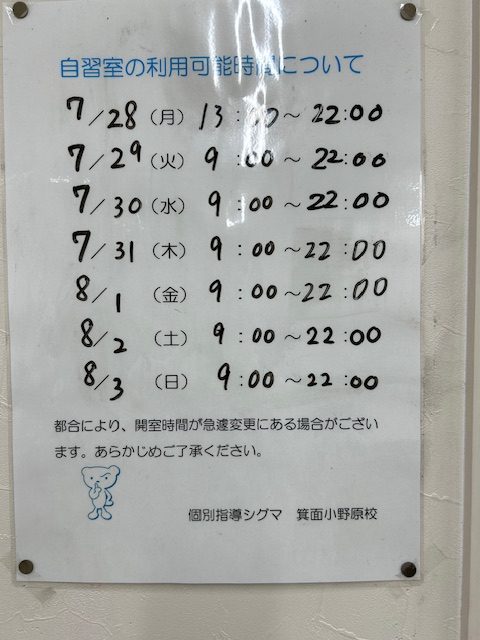 自習室の利用可能時間について
7/28（月）13:00～22:00
7/29（火）9:00～22:00
7/30（水）9:00～22:00
7/31（木）9:00～22:00
8/1（金）9:00～22:00
8/2（土）9:00～22:00
8/3（日）9:00～22:00
都合により、開室時間が急遽変更にある場合がござい
ます。あらかじめご了承ください。
個別指導シグマ　箕面小野原校